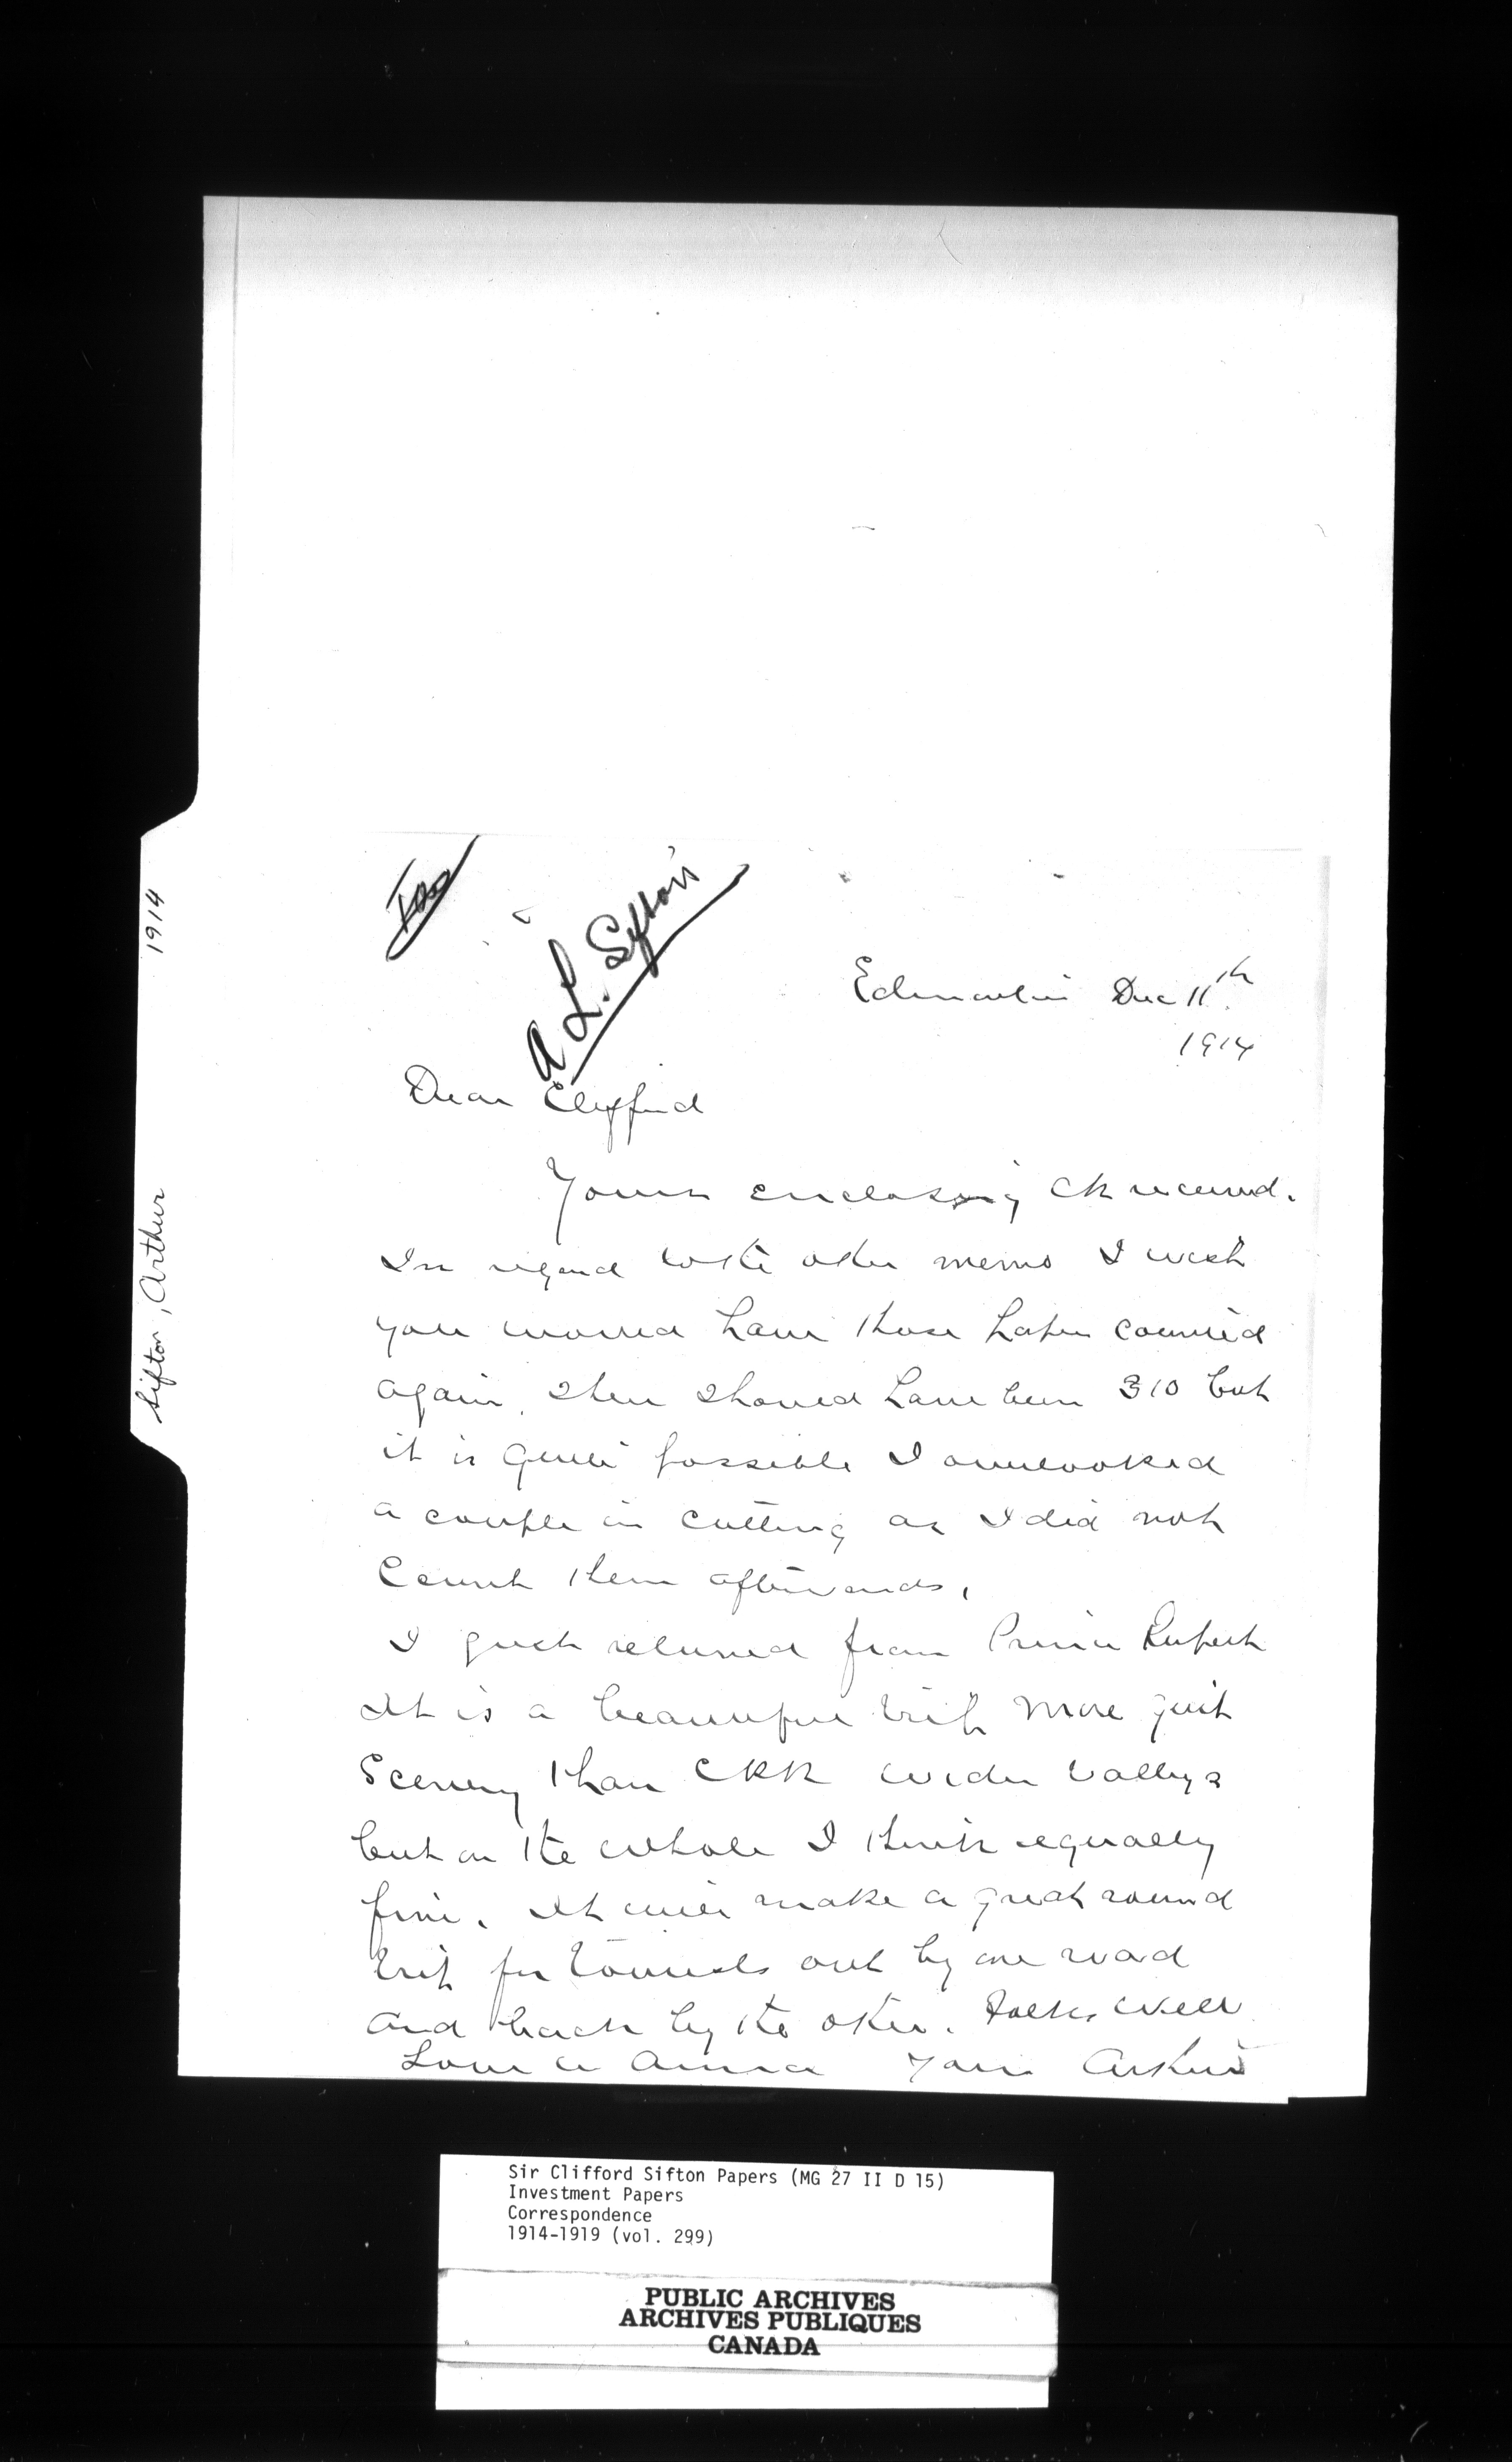 1914
Sifton, Arthur
A L. Sifton
Edmonton Dec 11th
1914
Dear Clifford
Yours enclosing Ck received.
In regard to the other memo I wish
you would have those counted
again. There should have been 310 but
it is quite possible I overlooked
a couple in cutting as I did not
count them afterwards.
I just returned from Prince Rupert
It is a beautiful trip more quiet
scenery than CPR wider valleys
but on the whole I think equally
fine. It will make a great round
trip for tourists out by one road
and back by the other. Folks well
Love to Anna Yours Arthur
Sir Clifford Sifton Papers (MG 27 II D 15)
Investment Papers
Correspondence
1914-1919 (vol. 299)
PUBLIC ARCHIVES
ARCHIVES PUBLIQUES
CANADA